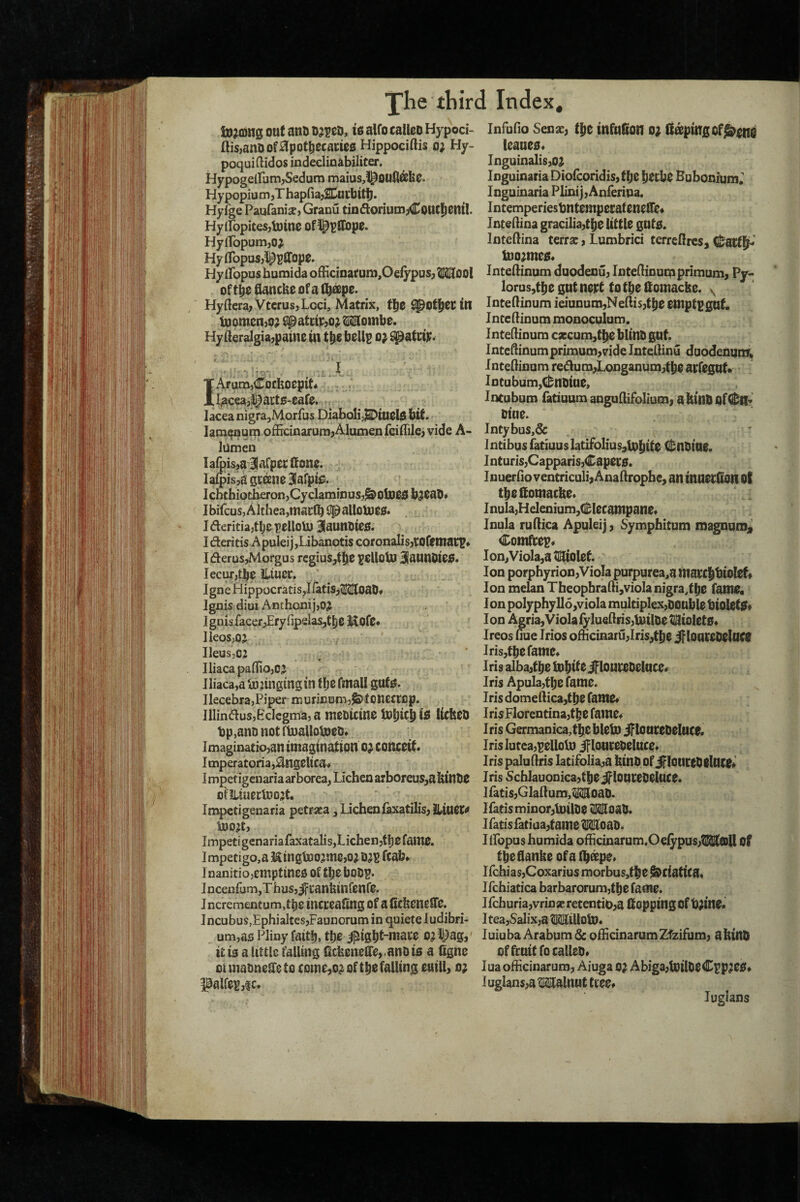 The third Index.
wrong out and dryed, is also called Hypoci-
stis,and of Apothecaries Hippocistis or Hy-
poquistidos indeclinabiliter.
Hypogessum,Sedum maius,Housleeke.
Hypopium,Thapsia,Turbith.
Hysge Pausaniæ, Granũ tinctorium,Coutchenil.
Hyssopites,wine of Hyssope.
Hyssopum,or
Hyssopus,Hyssope.
Hyssopus humida officinarum,Oesypus,Wool
of the flancke of a sheepe.
Hystera, Vterus,Loci, Matrix, the Mother in
women,or Matrix,or Wombe.
Hysteralgia,paine in the belly or Matrix.
I
IArum,Cockoepit.
Iacea,Harts-ease.
Iacea nigra,Morsus Diaboli,Diuels bit.
Iamenum officinarum,Alumen scissile, vide A-
lumen
Iaspis,a Iasper stone.
Iaspis,a greene Iaspis.
Ichthiotheron,Cyclaminus,Sowes bread.
Ibiscus, Althea,marsh Mallowes.
Icteritia,the yellow Iaundies.
Icteritis Apuleij,Libanotis coronalis,rosemary.
Icterus,Morgus regius,the yellow Iaundies.
Iecur,the Liuer.
Igne Hippocratis,Isatis,Woad.
Ignis diui Anthonij,or
Ignis sacer,Erysipelas,the Rose.
Ileos,or
Ileus,or
Iliaca passio,or
Iliaca,a wringing in the small guts.
Ilecebra,Piper murinum,Stonecrop.
Illinctus,Eclegma, a medicine which is licked
vp,and not swallowed.
Imaginatio,an imagination or conceit.
Imperatoria,Angelica.
Impetigenaria arborea, Lichen arboreus,a kinde
of Liuerwort.
Impetigenaria petræa , Lichen saxatilis, Liuer-
wort,
Impetigenaria saxatalis,Lichen,the same.
Impetigo,a Ringworme,or dry scab.
Inanitio,emptines of the body.
Incensum,Thus,Frankinsense.
Incrementum,the increasing of a sickenesse.
Incubus,Ephialtes,Faunorum in quiete ludibri-
um,as Pliny saith, the Night-mare or Hag,
it is a little falling sickenesse, and is a signe
of madnesse to come,or of the falling euill, or
Palsey,&c.
Infusio Senæ, the infusion or steeping of Sene
leaues.
Inguinalis,or
Inguinaria Dioscoridis,the herbe Bubonium.
Inguinaria Plinij,Anserina.
Intemperies vntemperatenesse.
Intestina gracilia,the little guts.
Intestina terræ, Lumbrici terrestres, Earth-
wormes.
Intestinum duodenũ, Intestinum primum, Py-
lorus,the gut next to the stomacke.
Intestinum ieiunum,Nestis,the empty gut.
Intestinum monoculum.
Intestinum cæcum,the blind gut.
Intestinum primum,vide Intestinũ duodenum,
Intestinum rectum,Longanum,the arsegut.
Intubum,Endiue,
Intubum satiuum angustifolium, a kind of En-
diue.
Intybus,&
Intibus satiuus latifolius,white Endiue.
Inturis,Capparis,Capers.
Inuersio ventriculi,Anastrophe, an inuersion of
the stomacke.
Inula,Helenium,Elecampane.
Inula rustica Apuleij, Symphitum magnum,
Comfrey.
Ion,Viola,a Violet.
Ion porphyrion,Viola purpurea,a march violet.
Ion melan Theophrasti,viola nigra,the same.
Ion polyphyllõ,viola multiplex,double violets.
Ion Agria,Viola syluestris,wilde Violets.
Ireos siue Irios officinarũ,Iris,the Flouredeluce
Iris,the same.
Iris alba,the white Flouredeluce.
Iris Apula,the same.
Iris domestica,the same.
Iris Florentina,the same.
Iris Germanica,the blew Flouredeluce.
Iris lutea,yellow Flouredeluce.
Iris palustris latifolia,a kind of Flouredeluce.
Iris Schlauonica,the Flouredeluce.
Isatis,Glastum,Woad.
Isatis minor,wilde Woad.
Isatis satiua,tame Woad.
Issopus humida officinarum.Oesypus,Wooll of
the flanke of a sheepe.
Ischias,Coxarius morbus,the Sciatica.
Ischiatica barbarorum,the same.
Ischuria,vrinæ retentio,a stopping of vrine.
Itea,Salix,a Willow.
Iuiuba Arabum & officinarum Zizifum, a kind
of fruit so called.
Iua officinarum, Aiuga or Abiga,wilde Cypres.
Iuglans,a Walnut tree.
Iuglans